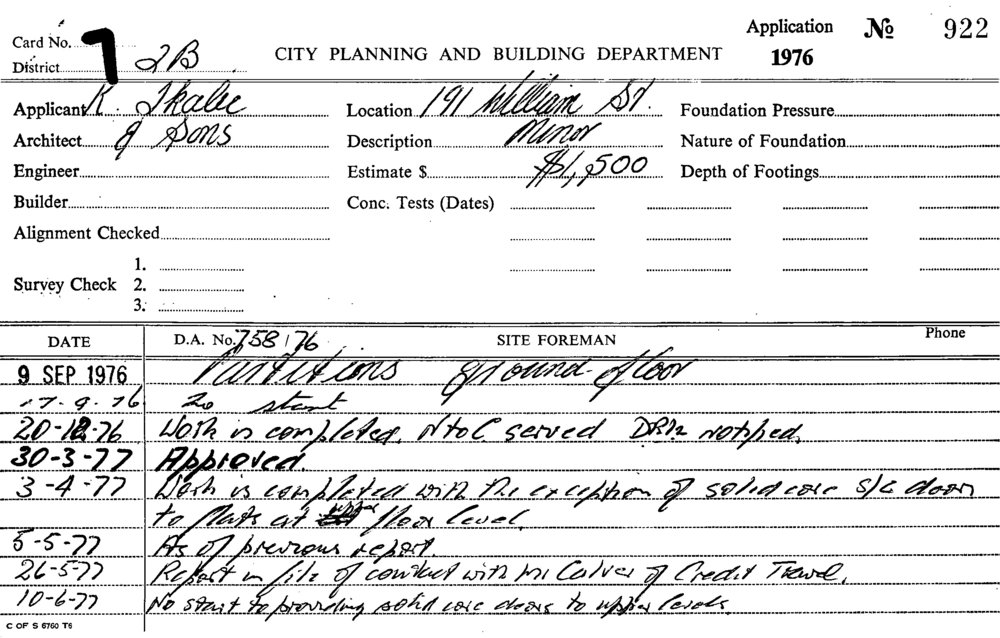 Card No. 7
District 2B
CITY PLANNING AND BUILDING DEPARTMENT
Application No 922
1976
Applicant K. Skalec
Architect & Sons
Engineer
Builder
Alignment Checked
Survey Check 1.
2.
3.
Location 191 William St.
Description Minor
Estimate $ $1,500
Conc. Tests (Dates)
Foundation Pressure
Nature of Foundation
Depth of Footings
DATE D.A. No. 758/76 SITE FOREMAN Phone
9 SEP 1976 Partitions ground floor
17.9.76 To start
20-12-76 Work is completed. NtoC served notified.
30-3-77 Approved.
3-4-77 Work is completed with the exception of solid core s/c doors
to flats at upper floor level.
5-5-77 As of previous report.
26-5-77 Report in file of contact with Mr Calver of Credit Travel.
10-6-77 No start to providing solid core doors to upper levels.
C OF S 6760 T6